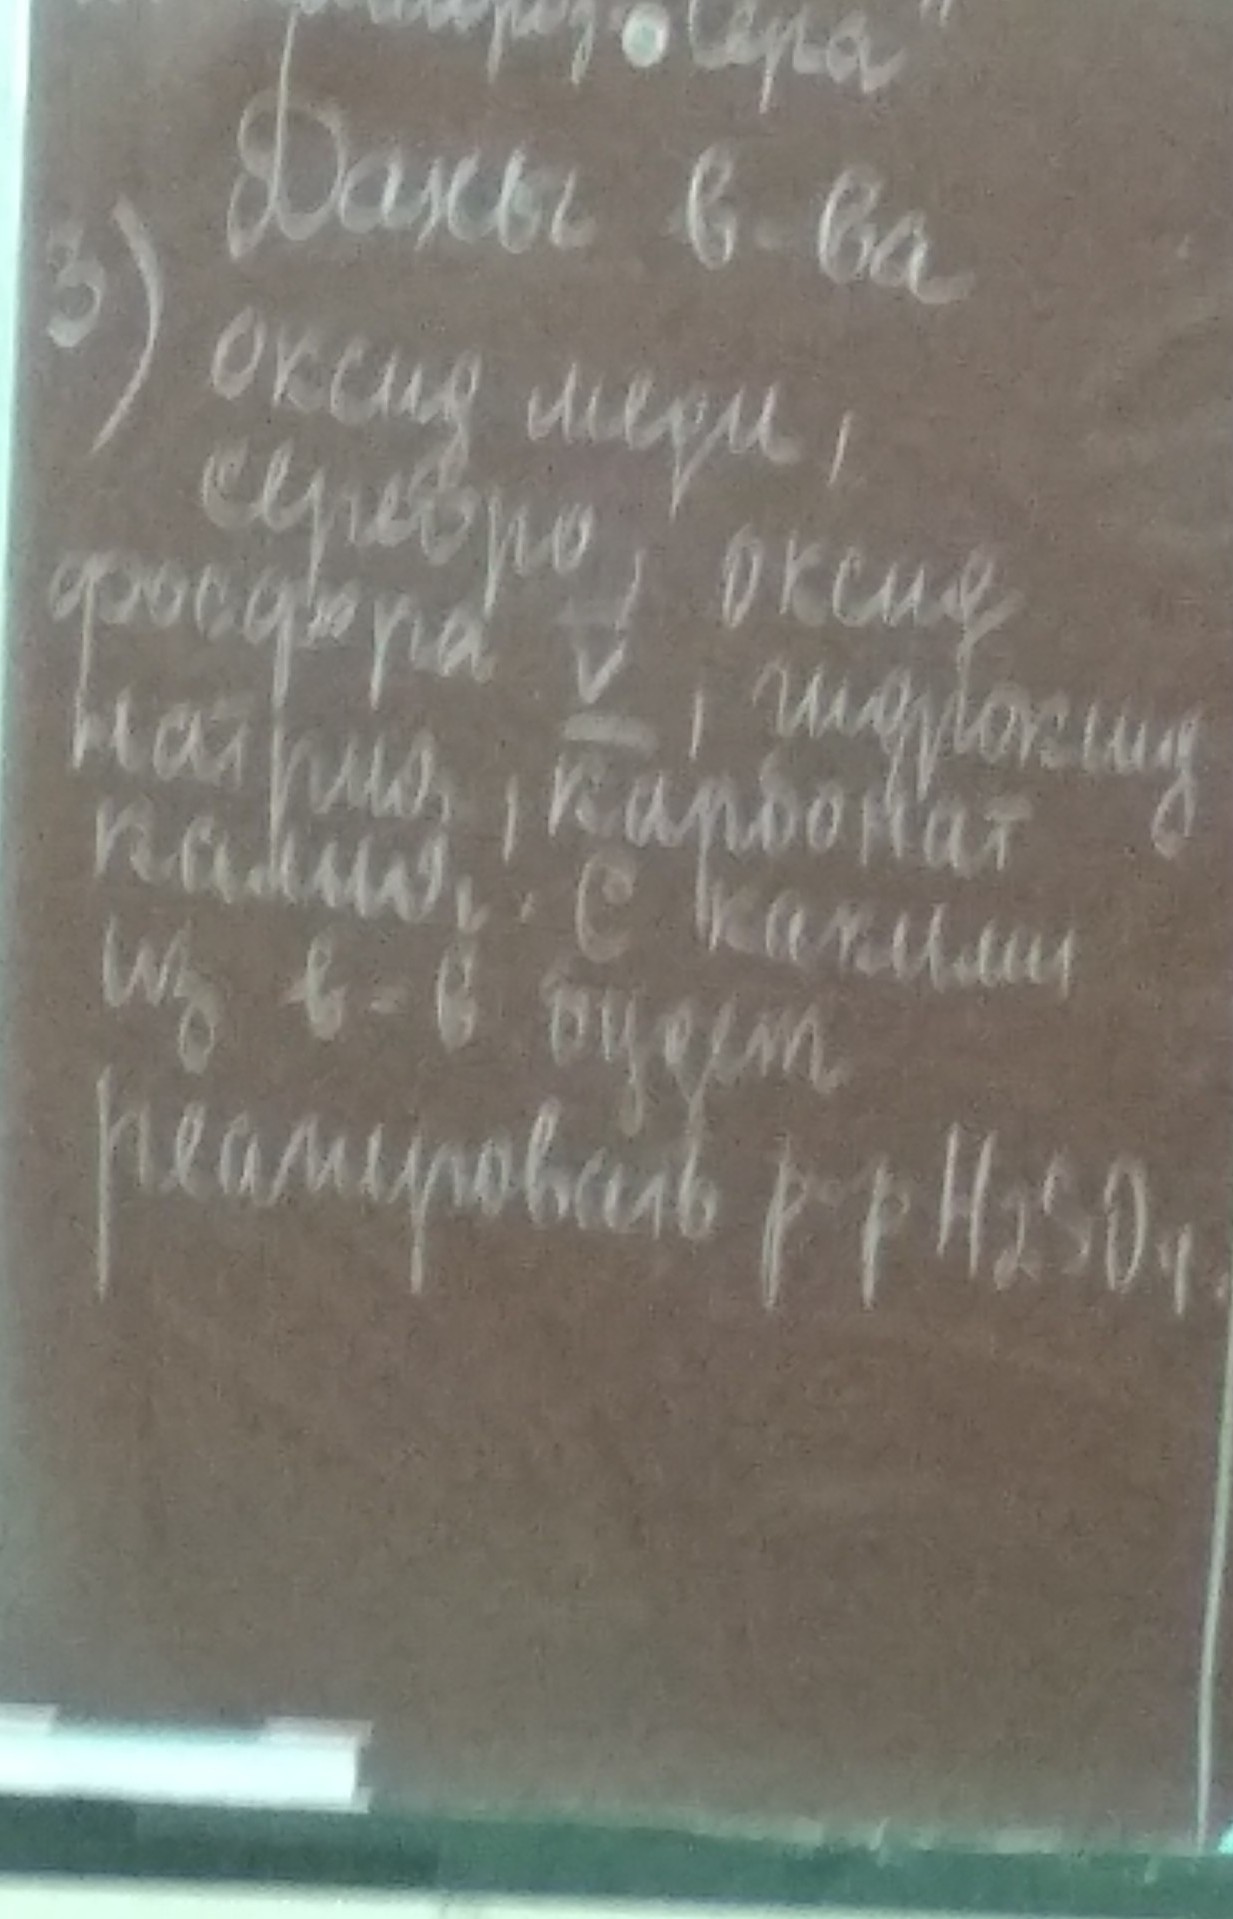 Сера"
Даны в-ва
3) оксид меди,
серебро, оксид
фосфора V, гидроксид
натрия, карбонат
калия. С какими
из в-в будет
реагировать р-р H₂SO₄.